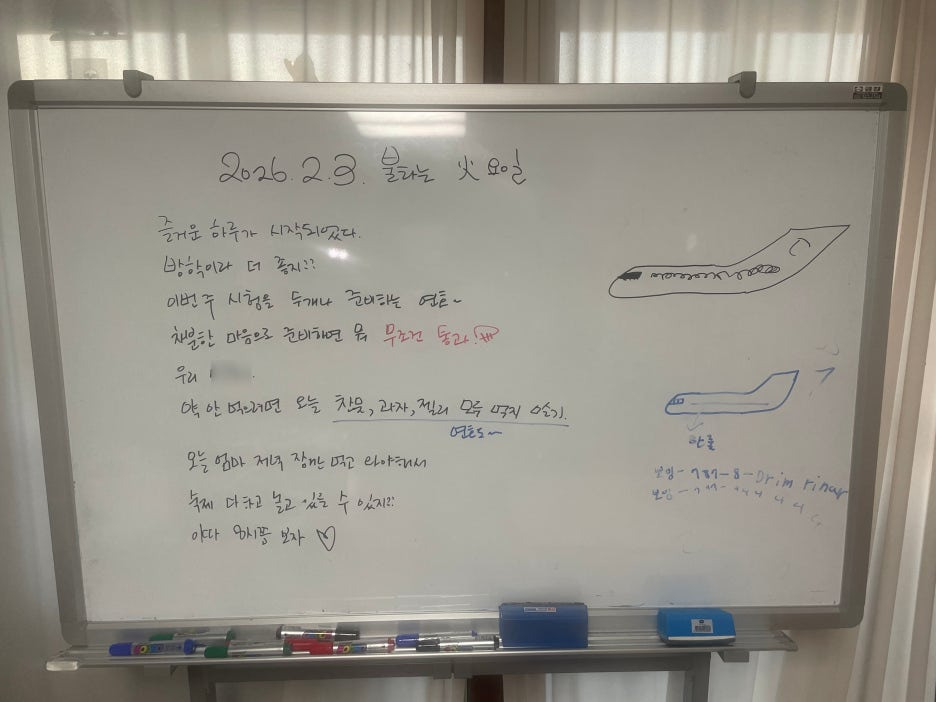 2026.2.3. 불타는 火요일
즐거운 하루가 시작되었다.
방학이라 더 좋지??
이번주 시험을 두개나 준비하는 연호~
차분한 마음으로 준비하면 뭐 무조건 통과!
우리
약 안 먹으려면 오늘 찬물, 과자, 젤리 모두 먹지 않기.
연호도~
오늘 엄마 저녁 잠깐 먹고 와야해서
숙제 다하고 놀고 있을 수 있지??
이따 8시쯤 보자 ♡
보잉-787-8-Drim rinar
보잉-777-